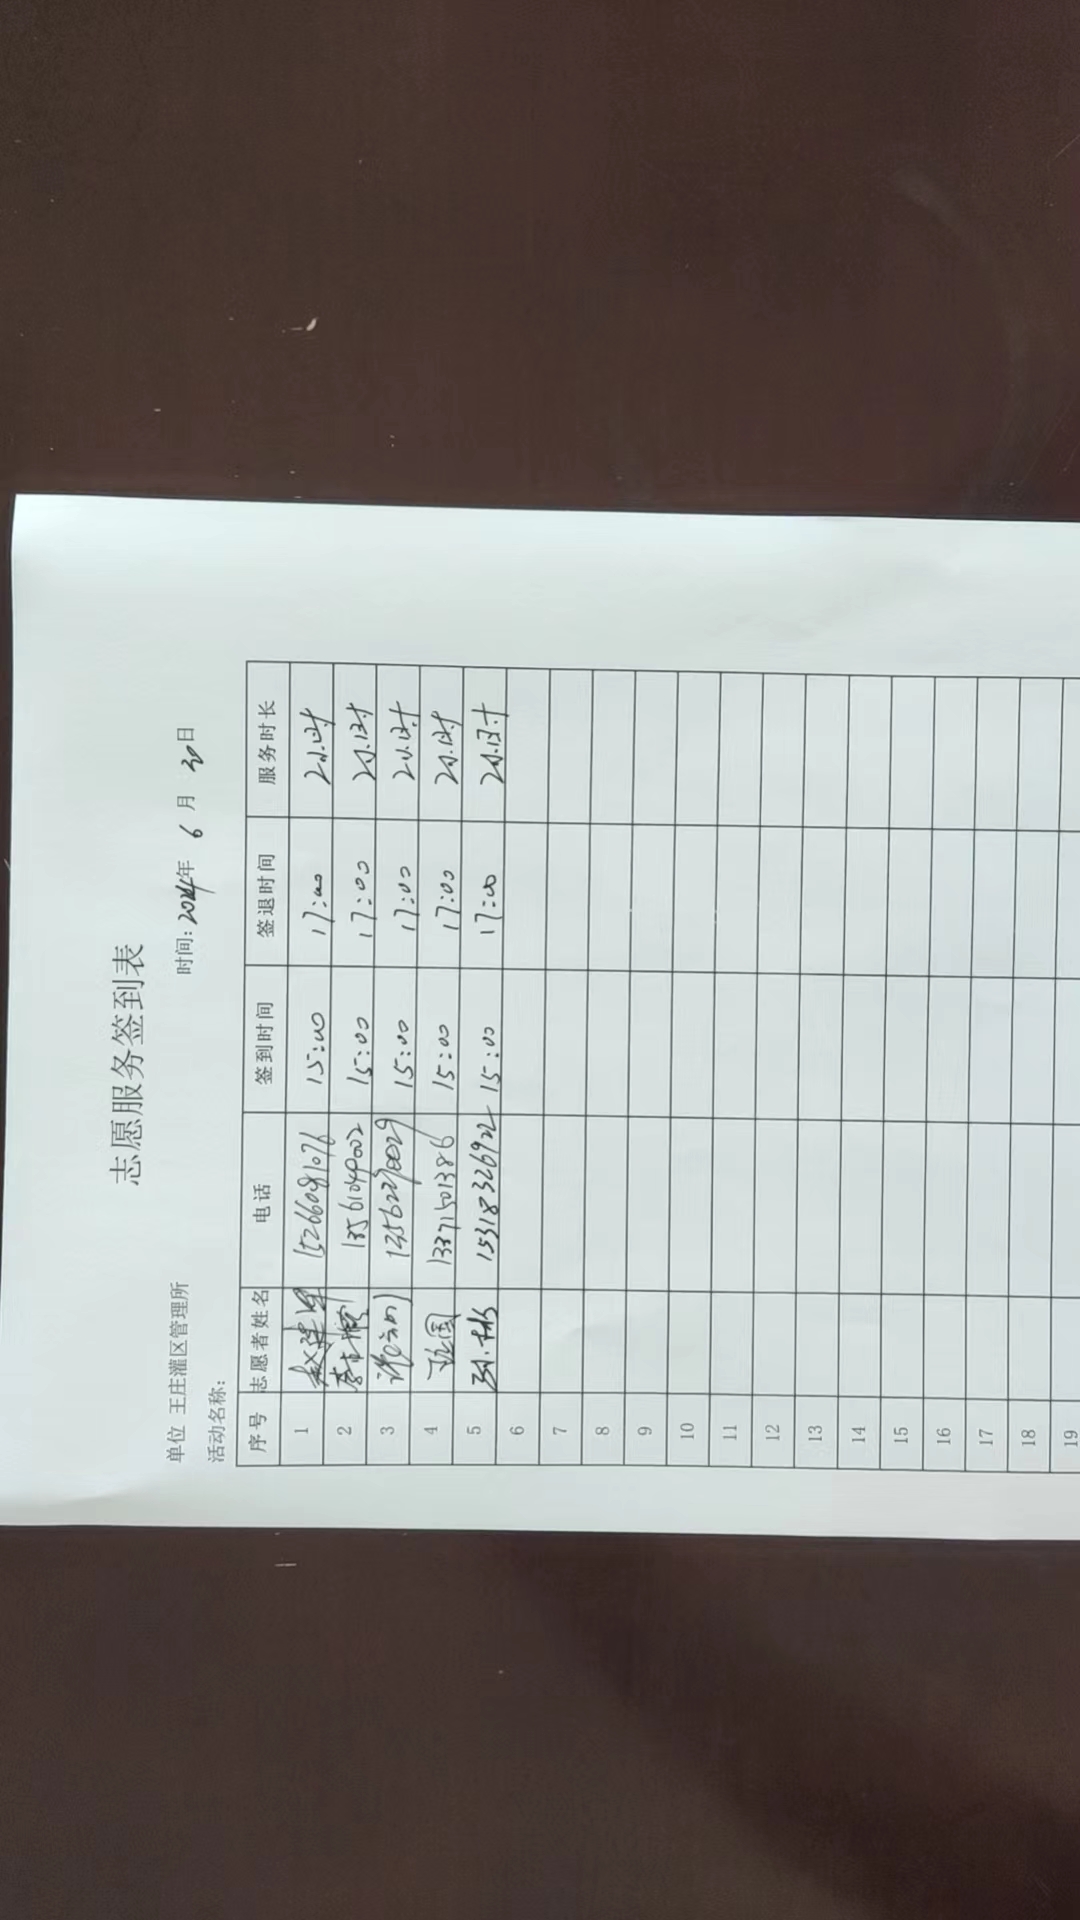 志愿服务签到表
单位 王庄灌区管理所 时间: 2024年 6 月 30日
活动名称:
序号 志愿者姓名 电话 签到时间 签退时间 服务时长
1 赵建军 15266081076 15:00 17:00 2小时
2 13561040002 15:00 17:00 2小时
3 15:00 17:00 2小时
4 13371501386 15:00 17:00 2小时
5 15318326922 15:00 17:00 2小时
6
7
8
9
10
11
12
13
14
15
16
17
18
19